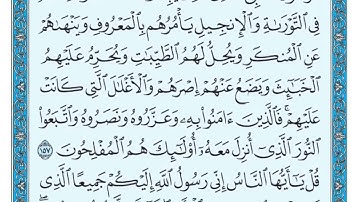 فِي ٱلتَّوۡرَىٰةِ وَٱلۡإِنجِيلِ يَأۡمُرُهُم بِٱلۡمَعۡرُوفِ وَيَنۡهَىٰهُمۡ
عَنِ ٱلۡمُنكَرِ وَيُحِلُّ لَهُمُ ٱلطَّيِّبَٰتِ وَيُحَرِّمُ عَلَيۡهِمُ
ٱلۡخَبَٰٓئِثَ وَيَضَعُ عَنۡهُمۡ إِصۡرَهُمۡ وَٱلۡأَغۡلَٰلَ ٱلَّتِي كَانَتۡ
عَلَيۡهِمۡۚ فَٱلَّذِينَ ءَامَنُواْ بِهِۦ وَعَزَّرُوهُ وَنَصَرُوهُ وَٱتَّبَعُواْ
ٱلنُّورَ ٱلَّذِيٓ أُنزِلَ مَعَهُۥٓ أُوْلَٰٓئِكَ هُمُ ٱلۡمُفۡلِحُونَ ١٥٧
قُلۡ يَٰٓأَيُّهَا ٱلنَّاسُ إِنِّي رَسُولُ ٱللَّهِ إِلَيۡكُمۡ جَمِيعًا ٱلَّذِي